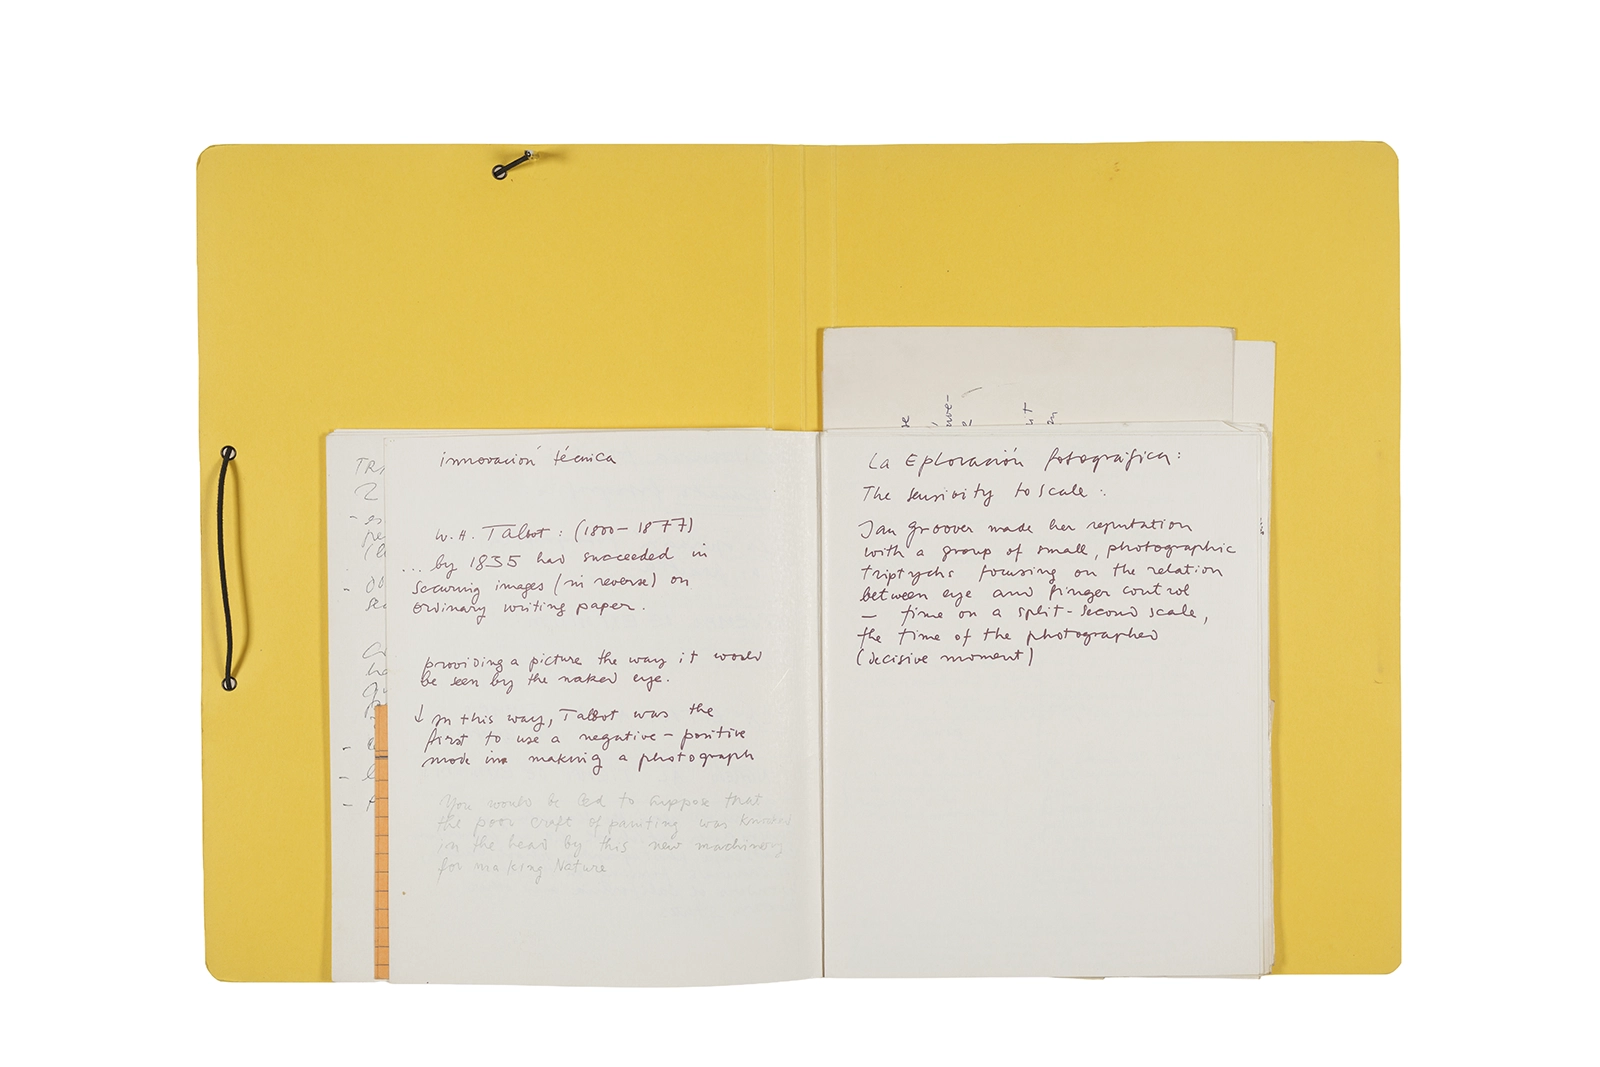 innovación técnica
W. H. Talbot : (1800 – 1877)
... by 1835 had succeeded in
securing images (in reverse) on
ordinary writing paper.
providing a picture the way it would
be seen by the naked eye.
↓ in this way, Talbot was the
first to use a negative – positive
mode in making a photograph
You would be led to suppose that
the poor craft of painting was knocked
in the head by this new machinery
for making Nature
La Eploración fotográfica:
The sensivity to scale :
Jan Groover made her reputation
with a group of small, photographic
triptychs focusing on the relation
between eye and finger control
– time on a split-second scale,
the time of the photographed
(decisive moment)